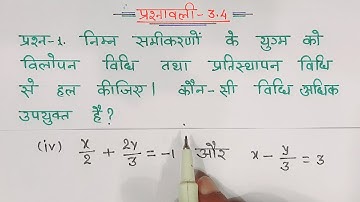 प्रश्नावली-3.4
प्रश्न-1. निम्न समीकरणों के युग्म को
विलोपन विधि तथा प्रतिस्थापन विधि
से हल कीजिए। कौन-सी विधि अधिक
उपयुक्त है?
(iv) x/2 + 2y/3 = -1 और x - y/3 = 3